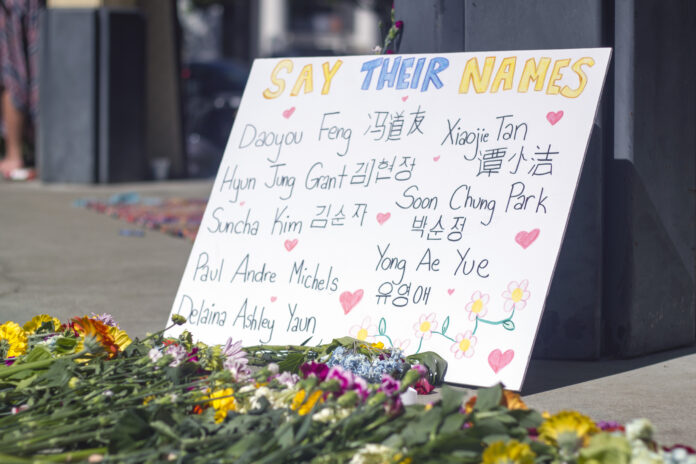 SAY THEIR NAMES
Daoyou Feng 冯道友
Xiaojie Tan
谭小洁
Hyun Jung Grant 김현정
Soon Chung Park
박순정
Suncha Kim 김순자
Yong Ae Yue
유영애
Paul Andre Michels
Delaina Ashley Yaun